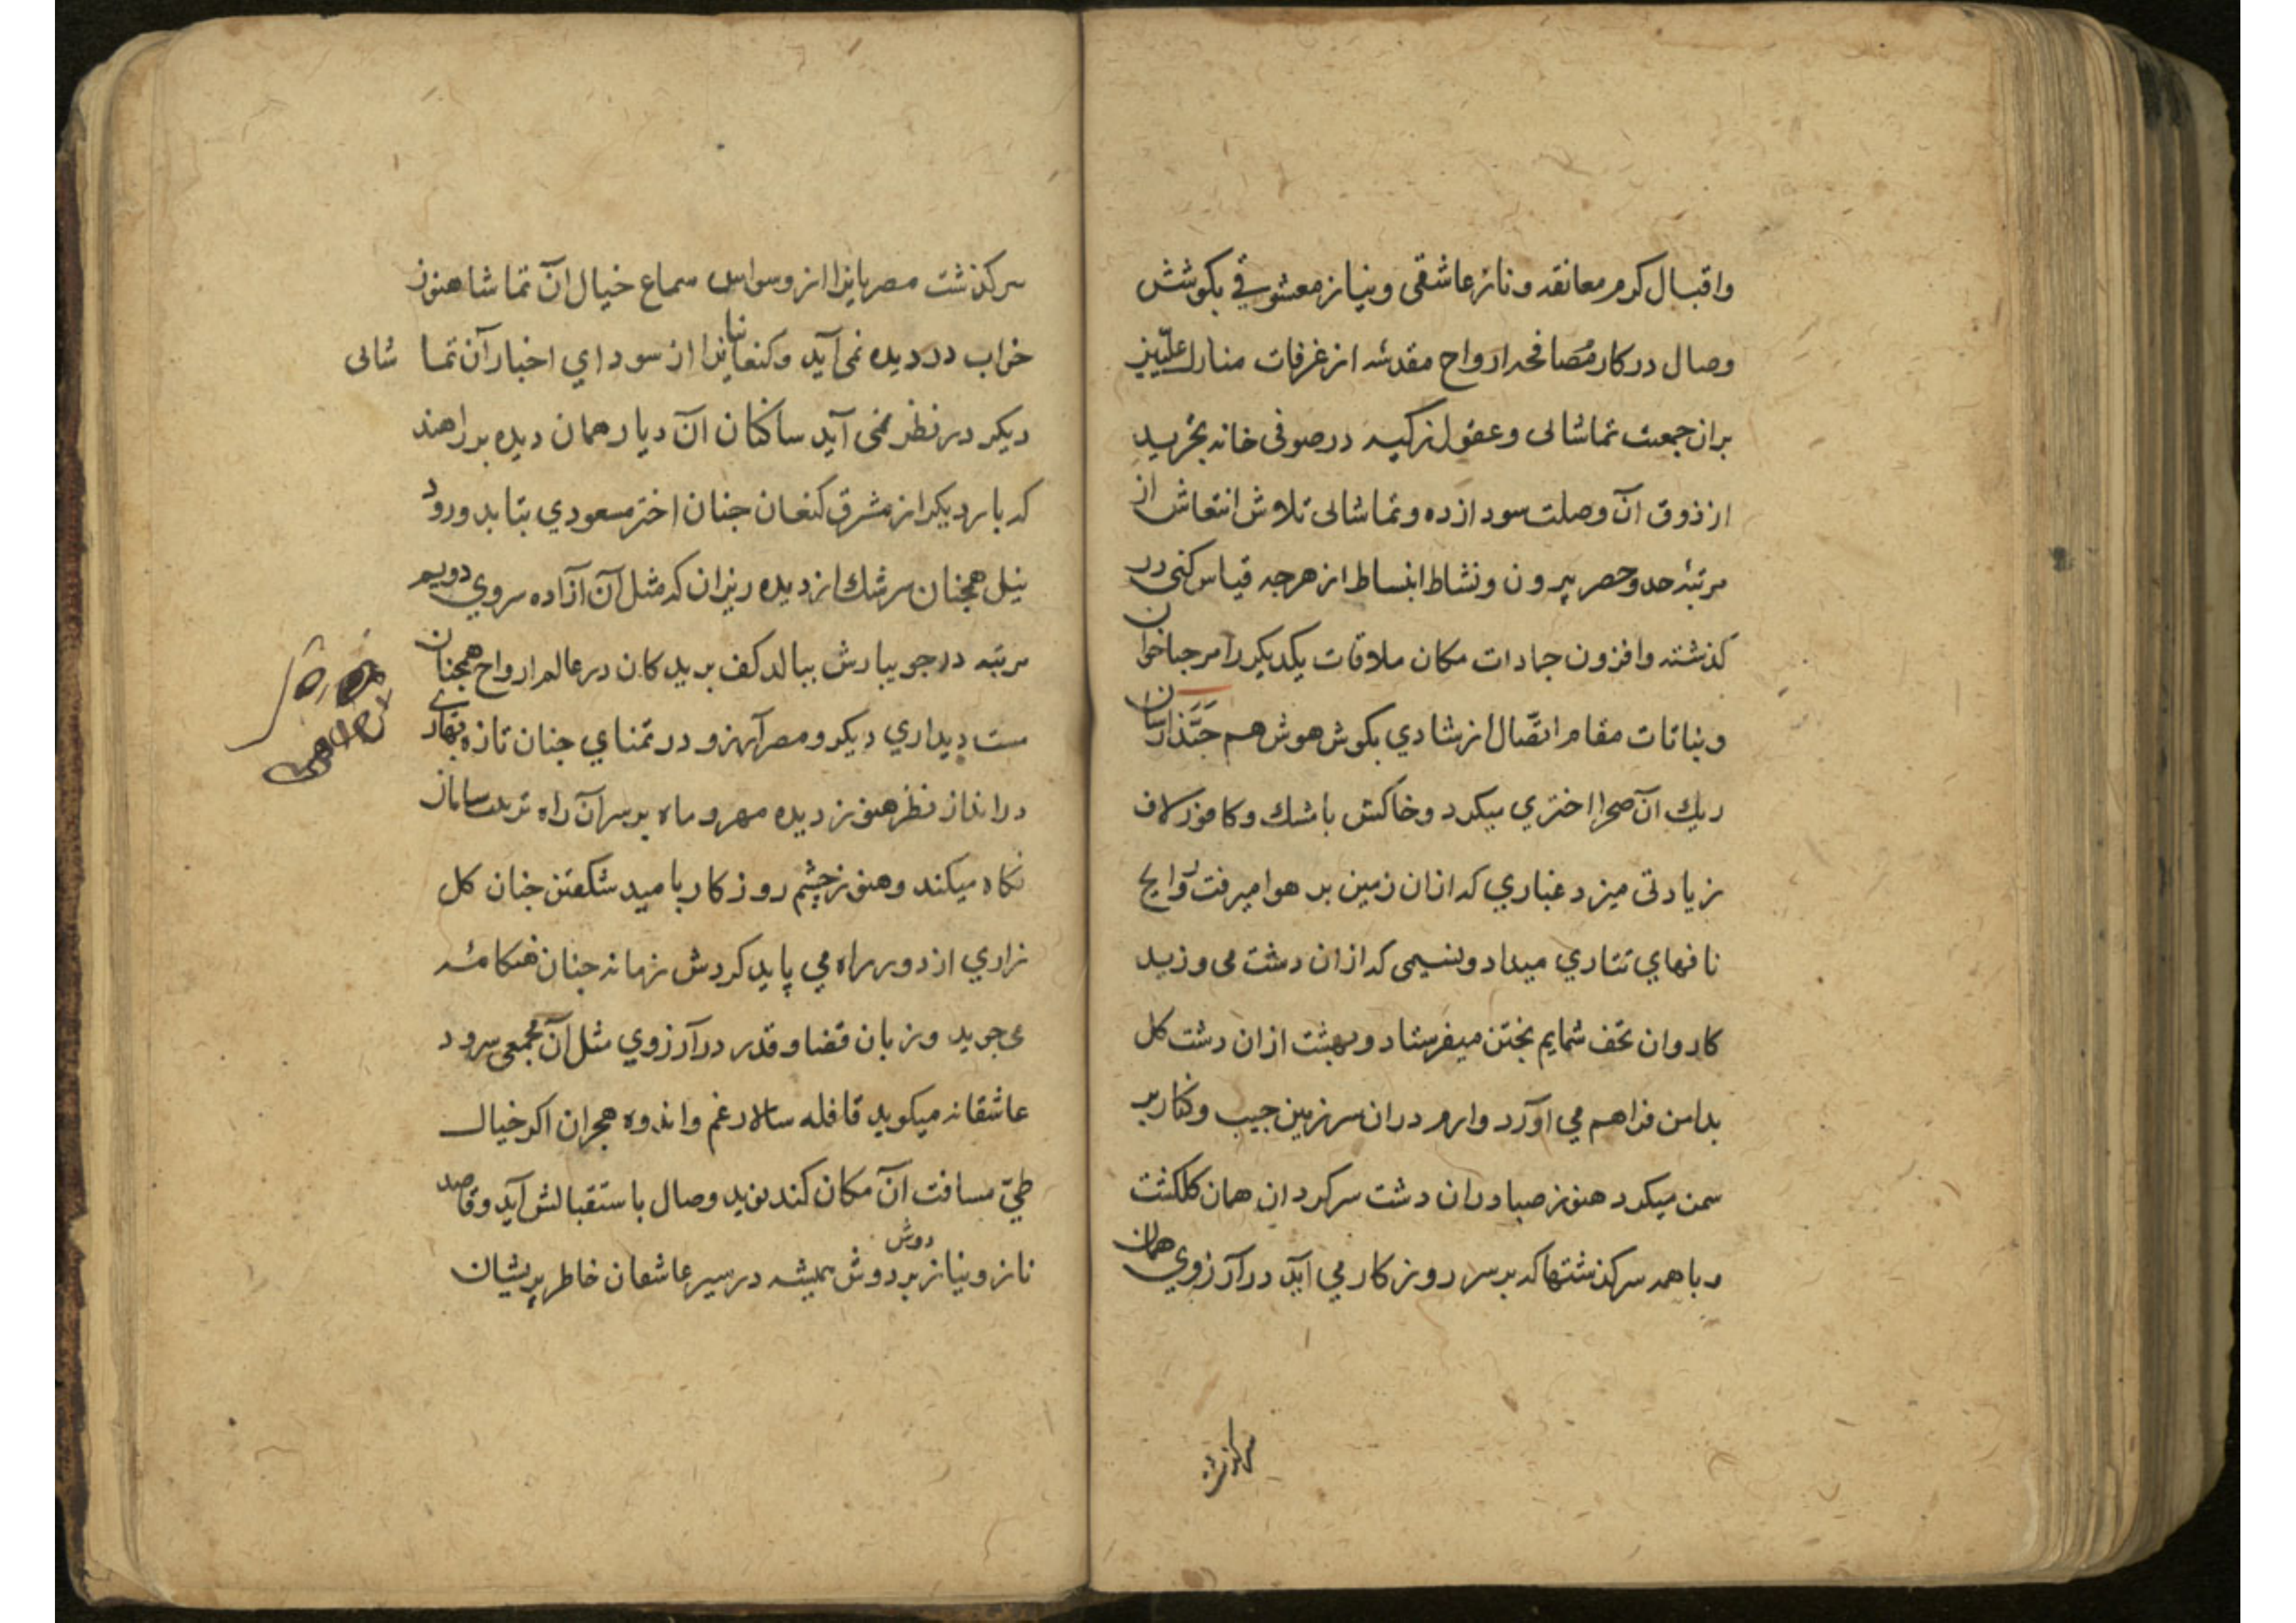 واقبال کرم معانقه و ناز عاشقی و نیاز معشوقی بکوشش
وصال درکار مُصافحه ارواح مقدسه از غرفات منازل علّیین
بران جمعیت تماشائی وعقول زکیه در صوفی خانه تجرید
از ذوق آن وصلت سودازده و تماشائی تلاش انتعاش از
مرتبهٔ حد وحصر بیرون ونشاط انبساط از هرچه قیاس کنی در
کذشته وافزون جمادات مکان ملاقات یکدیکر را مرحبا خوان
ونباتات مقام اتصّال از شادی بکوش هوش هم حَبَّذا رسان
ریك آن صحرا اختری میکرد وخاکش با مشك وکافور لاف
زیادتی میزد غباری که ازان زمین بر هوا میرفت روایح
نافهای تتاری میداد ونسیمی که ازان دشت می وزید
کاروان تحف شمایم بختن میفرستاد وبهشت ازان دشت کل
بدامن فراهم می آورد وارم دران سرزمین جیب وکنار پر
سمن میکرد هنوز صبا دران دشت سرکردان همان کلکشت
وباهمه سرکذشتها که بر سر روزکار می آید در آرزوی همان
سرکذشت
سرکذشت مصریانرا از وسواس سماع خیال آن تماشا هنوز
خواب در دیده نمی آید وکنعانیانرا از سودای اخبار آن تماشائی
دیکر در نظر نمی آید ساکنان آن دیار همان دیده بر راهند
که بار دیکر از مشرق کنعان چنان اختر مسعودی بتابد ورود
نیل همچنان سرشك از دیده ریزان که مثل آن آزاده سروی دویم
مرتبه در جویبارش ببالد کف بریدکان در عالم ارواح همچنان
مست دیداری دیکر ومصر آرزو در تمنای چنان تازه بهاری
در انداز نظر هنوز دیده مهر و ماه بر سر آن راه تربیت سامان
نکاه میکند وهنوز چشم روزکار بامید شکفتن چنان کل
زاری از دور راه می پاید کردش زمانه چنان هنکامه
می جوید وزبان قضا وقدر در آرزوی مثل آن مجمعی سرود
عاشقانه میکوید قافله سالار غم واندوه هجران اکر خیال
طیّ مسافت آن مکان کند نوید وصال باستقبالش آید وقاصد
ناز ونیاز بر دوش دوش همیشه در سیر عاشقان خاطر پریشان